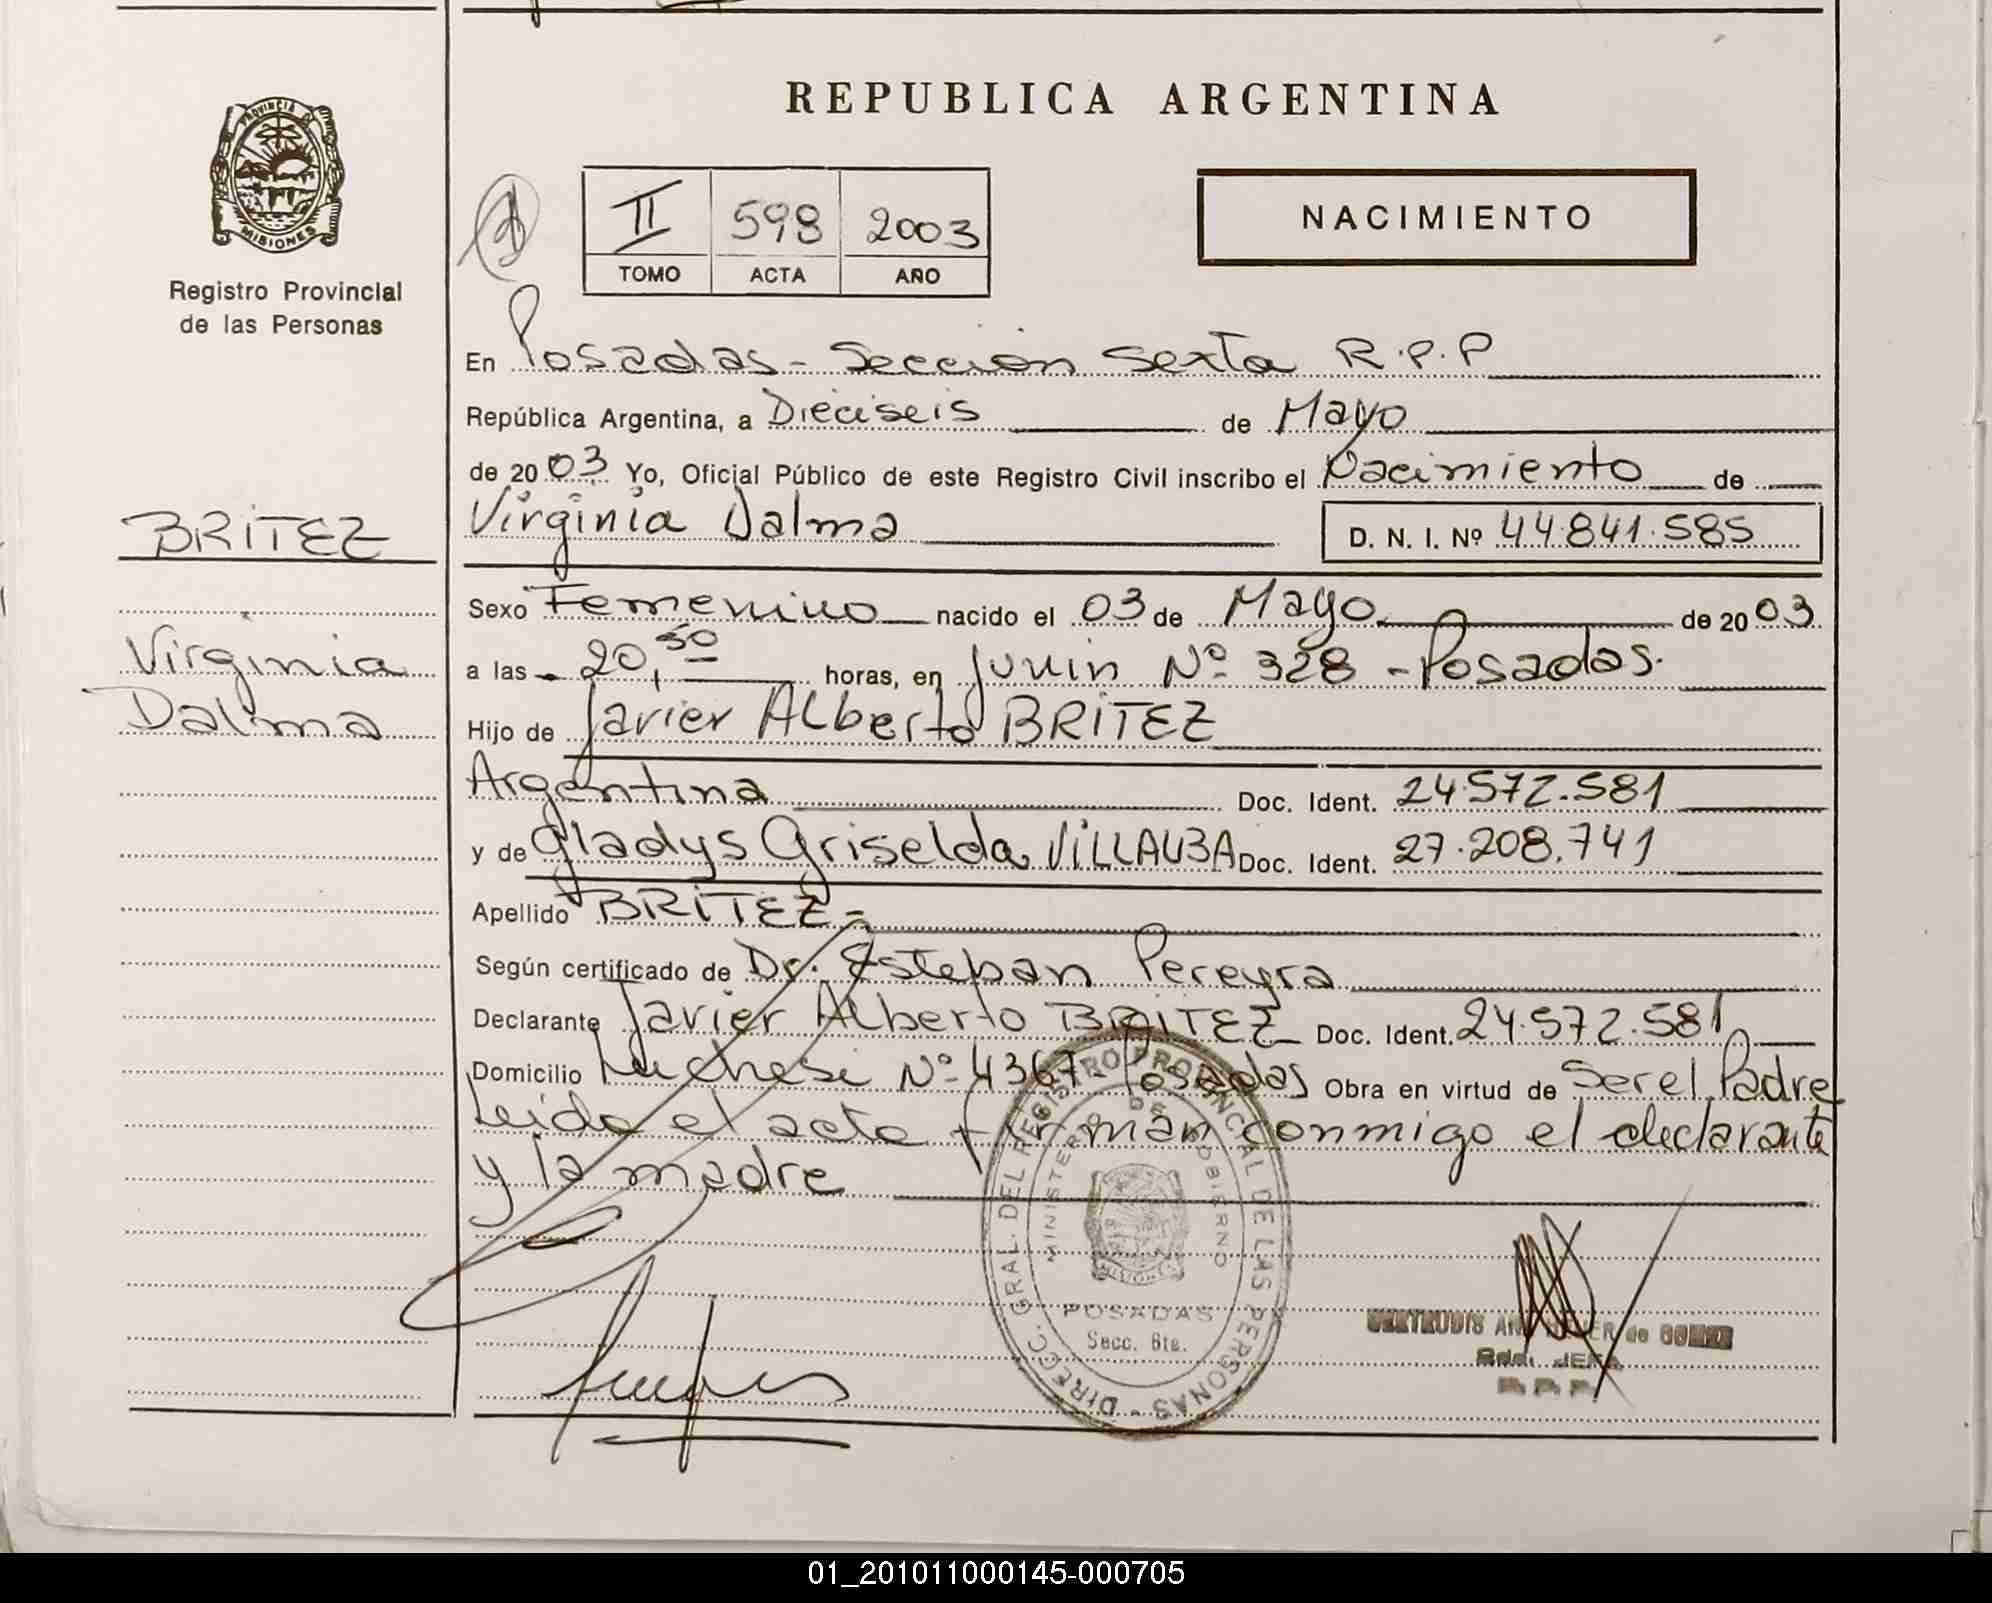 REPUBLICA ARGENTINA
PROVINCIA DE
MISIONES
Registro Provincial
de las Personas
II 598 2003
TOMO ACTA AÑO
NACIMIENTO
En Posadas - Sección Sexta R.P.P
República Argentina, a Dieciseis de Mayo
de 20 03 Yo, Oficial Público de este Registro Civil inscribo el Nacimiento de
BRITEZ
Virginia Dalma
D. N. I. Nº 44.841.585
Sexo Femenino nacido el 03 de Mayo de 20 03
Virginia
Dalma
a las 20,50 horas, en Junin Nº 328 - Posadas.
Hijo de Javier Alberto BRITEZ
Argentina Doc. Ident. 24.572.581
y de Gladys Griselda VILLALBA Doc. Ident. 27.208.741
Apellido BRITEZ -
Según certificado de Dr. Esteban Pereyra
Declarante Javier Alberto BRITEZ Doc. Ident. 24.572.581
Domicilio Luchesi Nº 4367 - Posadas Obra en virtud de Ser el Padre
Leida el acta firman conmigo el declarante
y la madre
DIREC. GRAL. DEL REGISTRO PROVINCIAL DE LAS PERSONAS -
MINISTERIO DE GOBIERNO
MISIONES
POSADAS
Secc. 6ta.
GERTRUDIS de GOMEZ
JEFA
R.P.P.
01_201011000145-000705